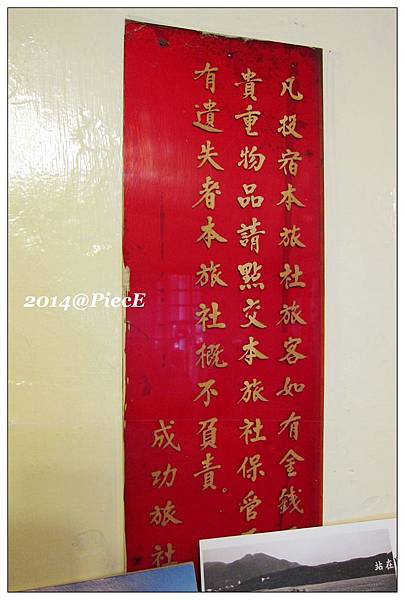 凡投宿本旅社旅客如有金錢
貴重物品請點交本旅社保管
有遺失者本旅社概不負責。
成功旅社
2014@PiecE
站在